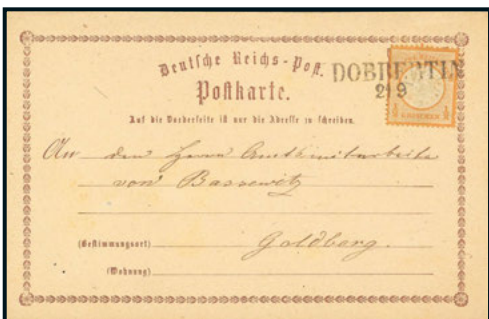 Deutsche Reichs-Post.
DOBBERTIN
21 9
Postkarte.
Auf die Vorderseite ist nur die Adresse zu schreiben.
An den Herrn Amtsmitarbeiter
von Bassewitz
(Bestimmungsort) Goldberg.
(Wohnung)